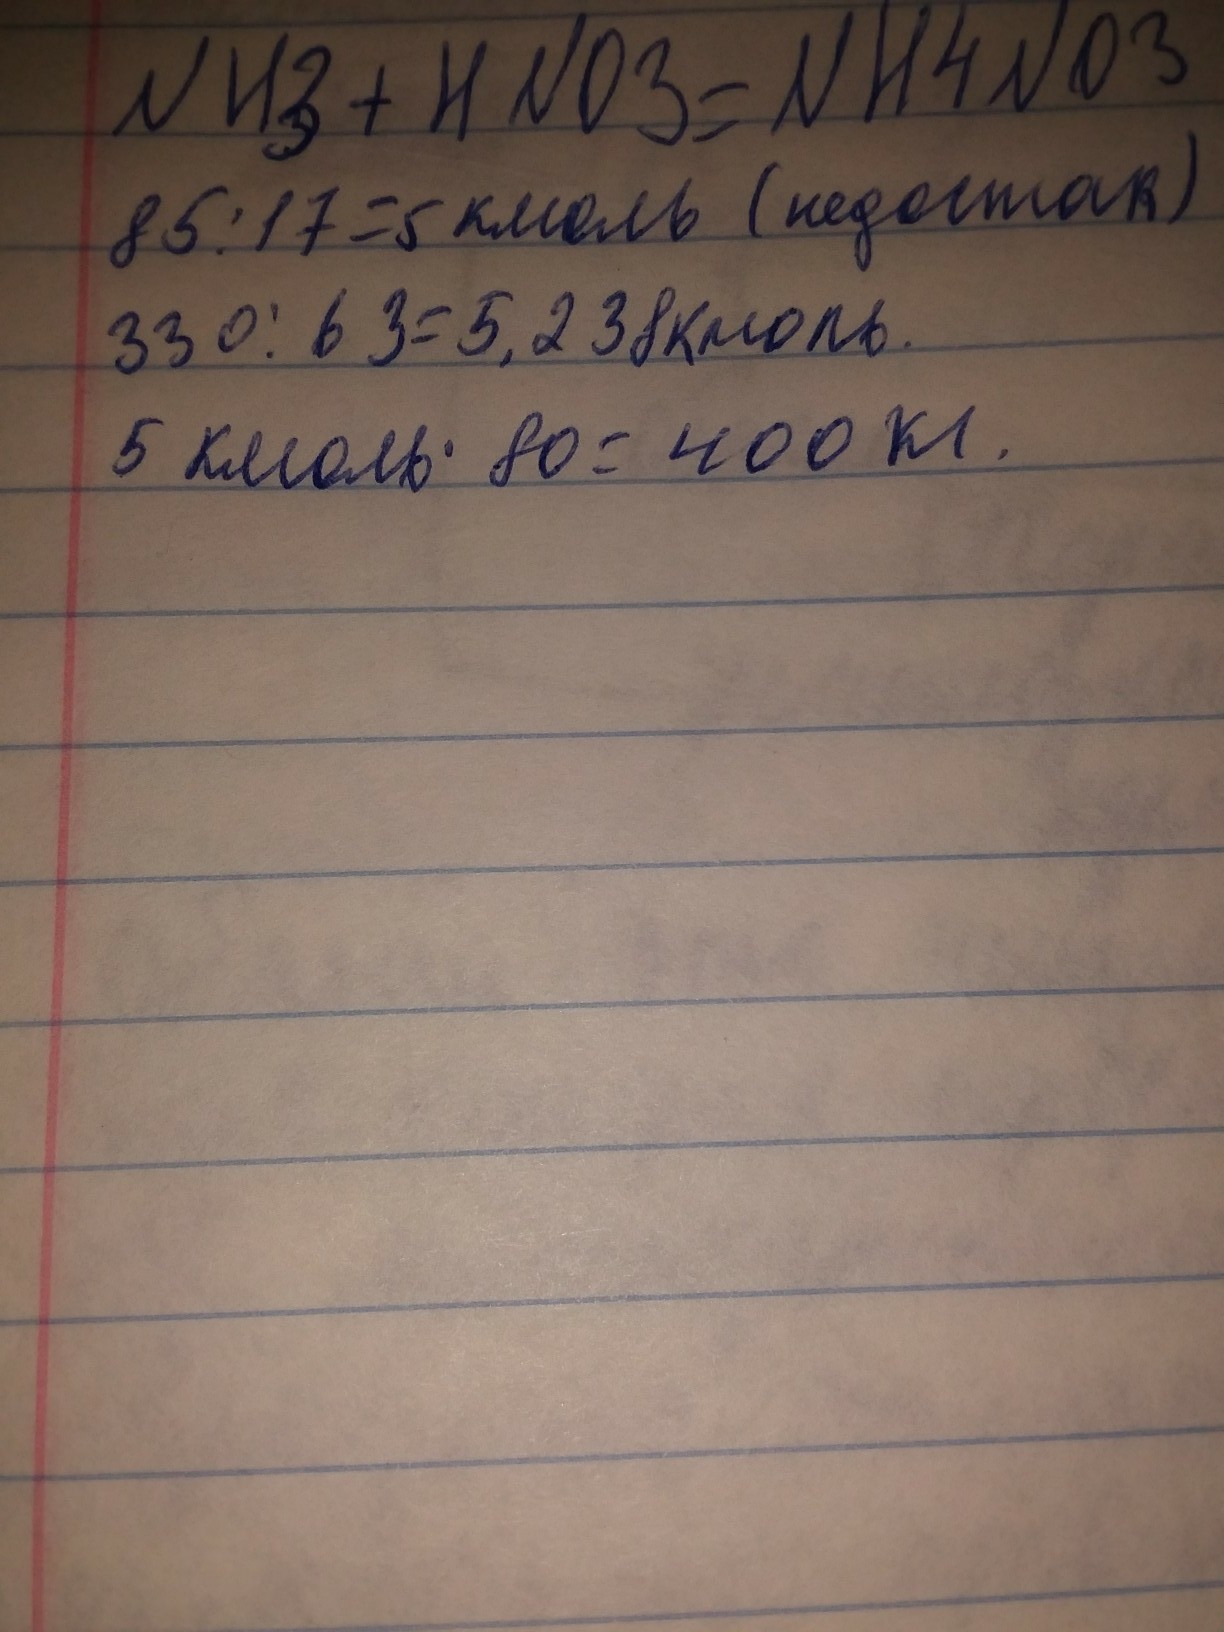 NH3 + HNO3 = NH4NO3
85:17=5 кмоль (недостак)
330:63=5,238кмоль.
5 кмоль· 80= 400 кг.